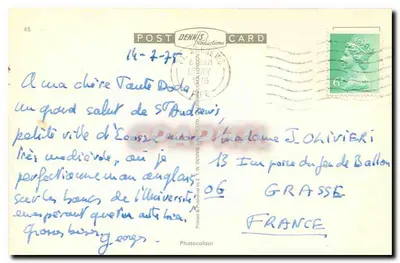 45
DENNIS
Productions
POST CARD
14-7-75
A ma chère Tante Doda
un grand salut de St Andrews
petite ville d'Ecosse
très médiévale, où je
perfectionne mon anglais
sur les bancs de l'Université
en espérant que ton
Gros bisous
Madame J. OLIVIERI
13 Impasse du Jeu de Ballon
06 GRASSE
FRANCE
Photocolour